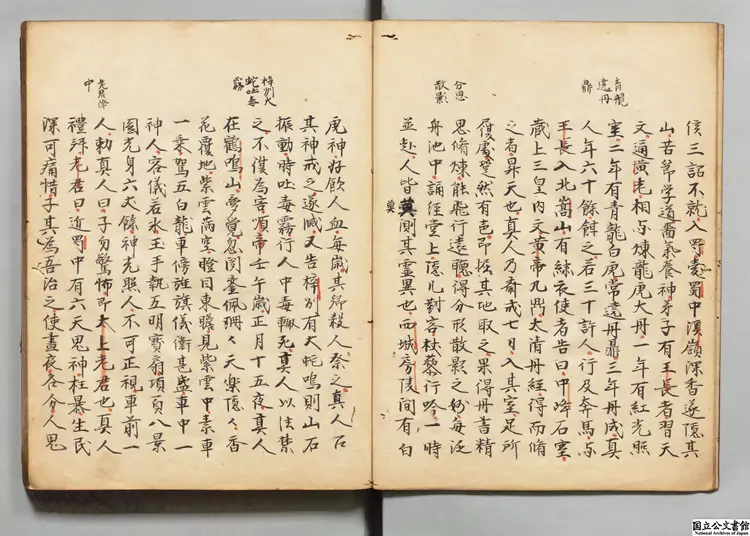 青龍
遶丹
鼎
侯三詔不就入蜀愛蜀中溪嶺深杳遂隠其
山苦節学道嗇氣養神弟子有王長者習天
文通黄老相与煉龍虎大丹一年有紅光照
室二年有青龍白虎常遶丹鼎三年丹成真
人年六十餘餌之若三十許人行及奔馬与
王長入北嵩山有繍衣使者告曰中峰石室
蔵上三皇内文黄帝九鼎太清丹経得而脩
之者昇天也真人乃斎戒七日入其室足所
履處跫然有色即掘其地取之果得丹書精
分思
散影
思脩煉能飛行遠聽得分形散影之妙每泛
舟池中誦経堂上隠几對客杖藜行吟一時
並赴人皆莫測其霊異也西城房陵間有白
虎神好飲人血每歳其郷殺人祭之真人召
梓州大
蛇吐毒
霧
其神戒之遂滅又告梓州有大蛇鳴則山石
振動時吐毒霧行人中毒輒死真人以法禁
之不復為害順帝壬午歳正月十五夜真人
在鶴鳴山無覚忽聞鑾佩珊々天樂隠々香
花覆地紫雲滿空瞪目東瞻見紫雲中素車
一乗駕五白龍車傍旌旗儀衛甚盛車中一
神人容儀若氷玉手執五明寳扇項負八景
圓光身六丈餘神光照人不可正視車前一
老君降
中
人勅真人曰子勿驚怖即太上老君也真人
禮拝老君曰近蜀中有六天鬼神枉暴生民
深可痛惜子其為吾治之使晝夜各分人鬼
国立公文書館
National Archives of Japan